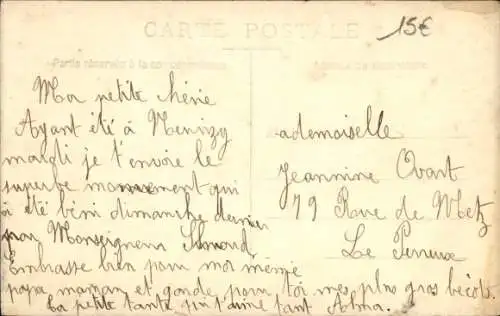 CARTE POSTALE
15€
Partie réservée à la correspondance
Ma petite chérie
Ayant été à
mardi je t'envoie le
superbe monument qui
à été béni dimanche dernier
par Monseigneur
Embrasse bien pour moi mémé
papa maman et garde pour toi mes plus gros bécots
ta petite tante qui t'aime tant Alma.
ademoiselle
Jeannine
79 Rue de Metz
Le Perreux